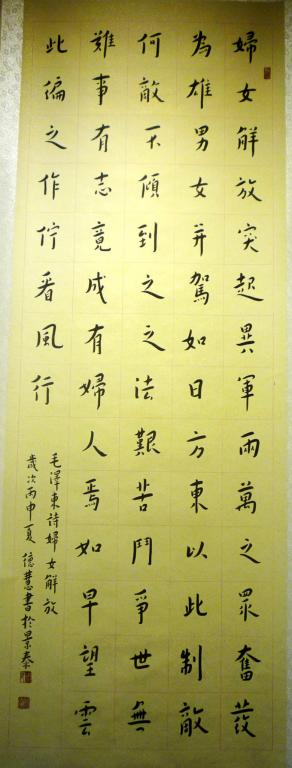 婦女解放突起異軍兩萬之眾奮發
為雄男女并駕如日方東以此制敵
何敵不傾到之之法艱苦鬥爭世無
難事有志竟成有婦人焉如早望雲
此偏之作佇看風行
毛澤東詩婦女解放
歲次丙申夏德慧書於景泰